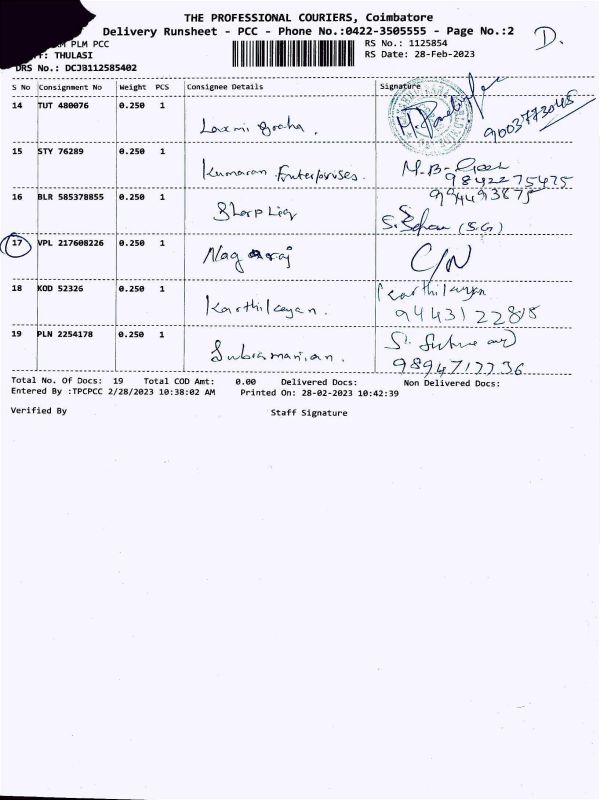 THE PROFESSIONAL COURIERS, Coimbatore
Delivery Runsheet - PCC - Phone No.:0422-3505555 - Page No.:2
D.
PLM PCC
RS No.: 1125854
THULASI
RS Date: 28-Feb-2023
DRS No.: DCJB112585402
S No Consignment No Weight PCS Consignee Details Signature
14 TUT 480076 0.250 1 Laxmi Graha. 9003773048
15 STY 76289 0.250 1 Kumaran Enterprises. M.B-
9842275475
16 BLR 585378855 0.250 1 Sharp Liey 994493875
(S.G)
17 VPL 217608226 0.250 1 Nagaraj C/N
18 KOD 52326 0.250 1 Karthikeyan. Karthikeyan
9443122818
19 PLN 2254178 0.250 1 Subramanian.
9894717736
Total No. Of Docs: 19 Total COD Amt: 0.00 Delivered Docs: Non Delivered Docs:
Entered By :TPCPCC 2/28/2023 10:38:02 AM Printed On: 28-02-2023 10:42:39
Verified By Staff Signature